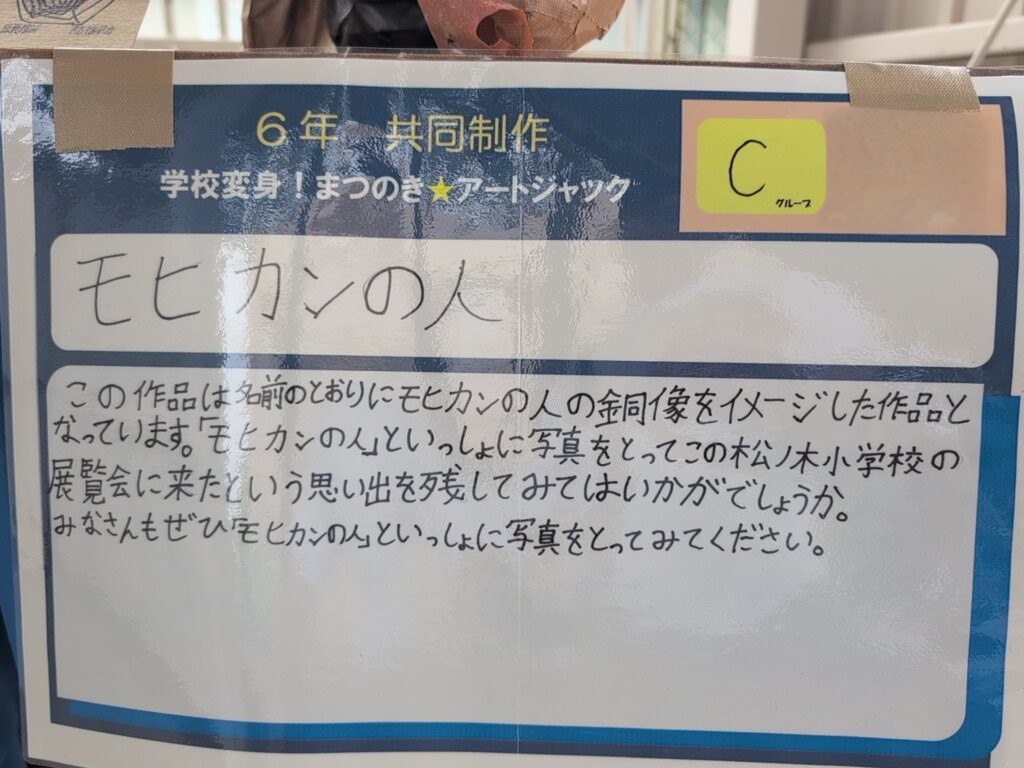 6年 共同制作
学校変身！まつのき★アートジャック
C
グループ
モヒカンの人
この作品は名前のとおりにモヒカンの人の銅像をイメージした作品と
なっています。「モヒカンの人」といっしょに写真をとってこの松ノ木小学校の
展覧会に来たという思い出を残してみてはいかがでしょうか。
みなさんもぜひ「モヒカンの人」といっしょに写真をとってみてください。